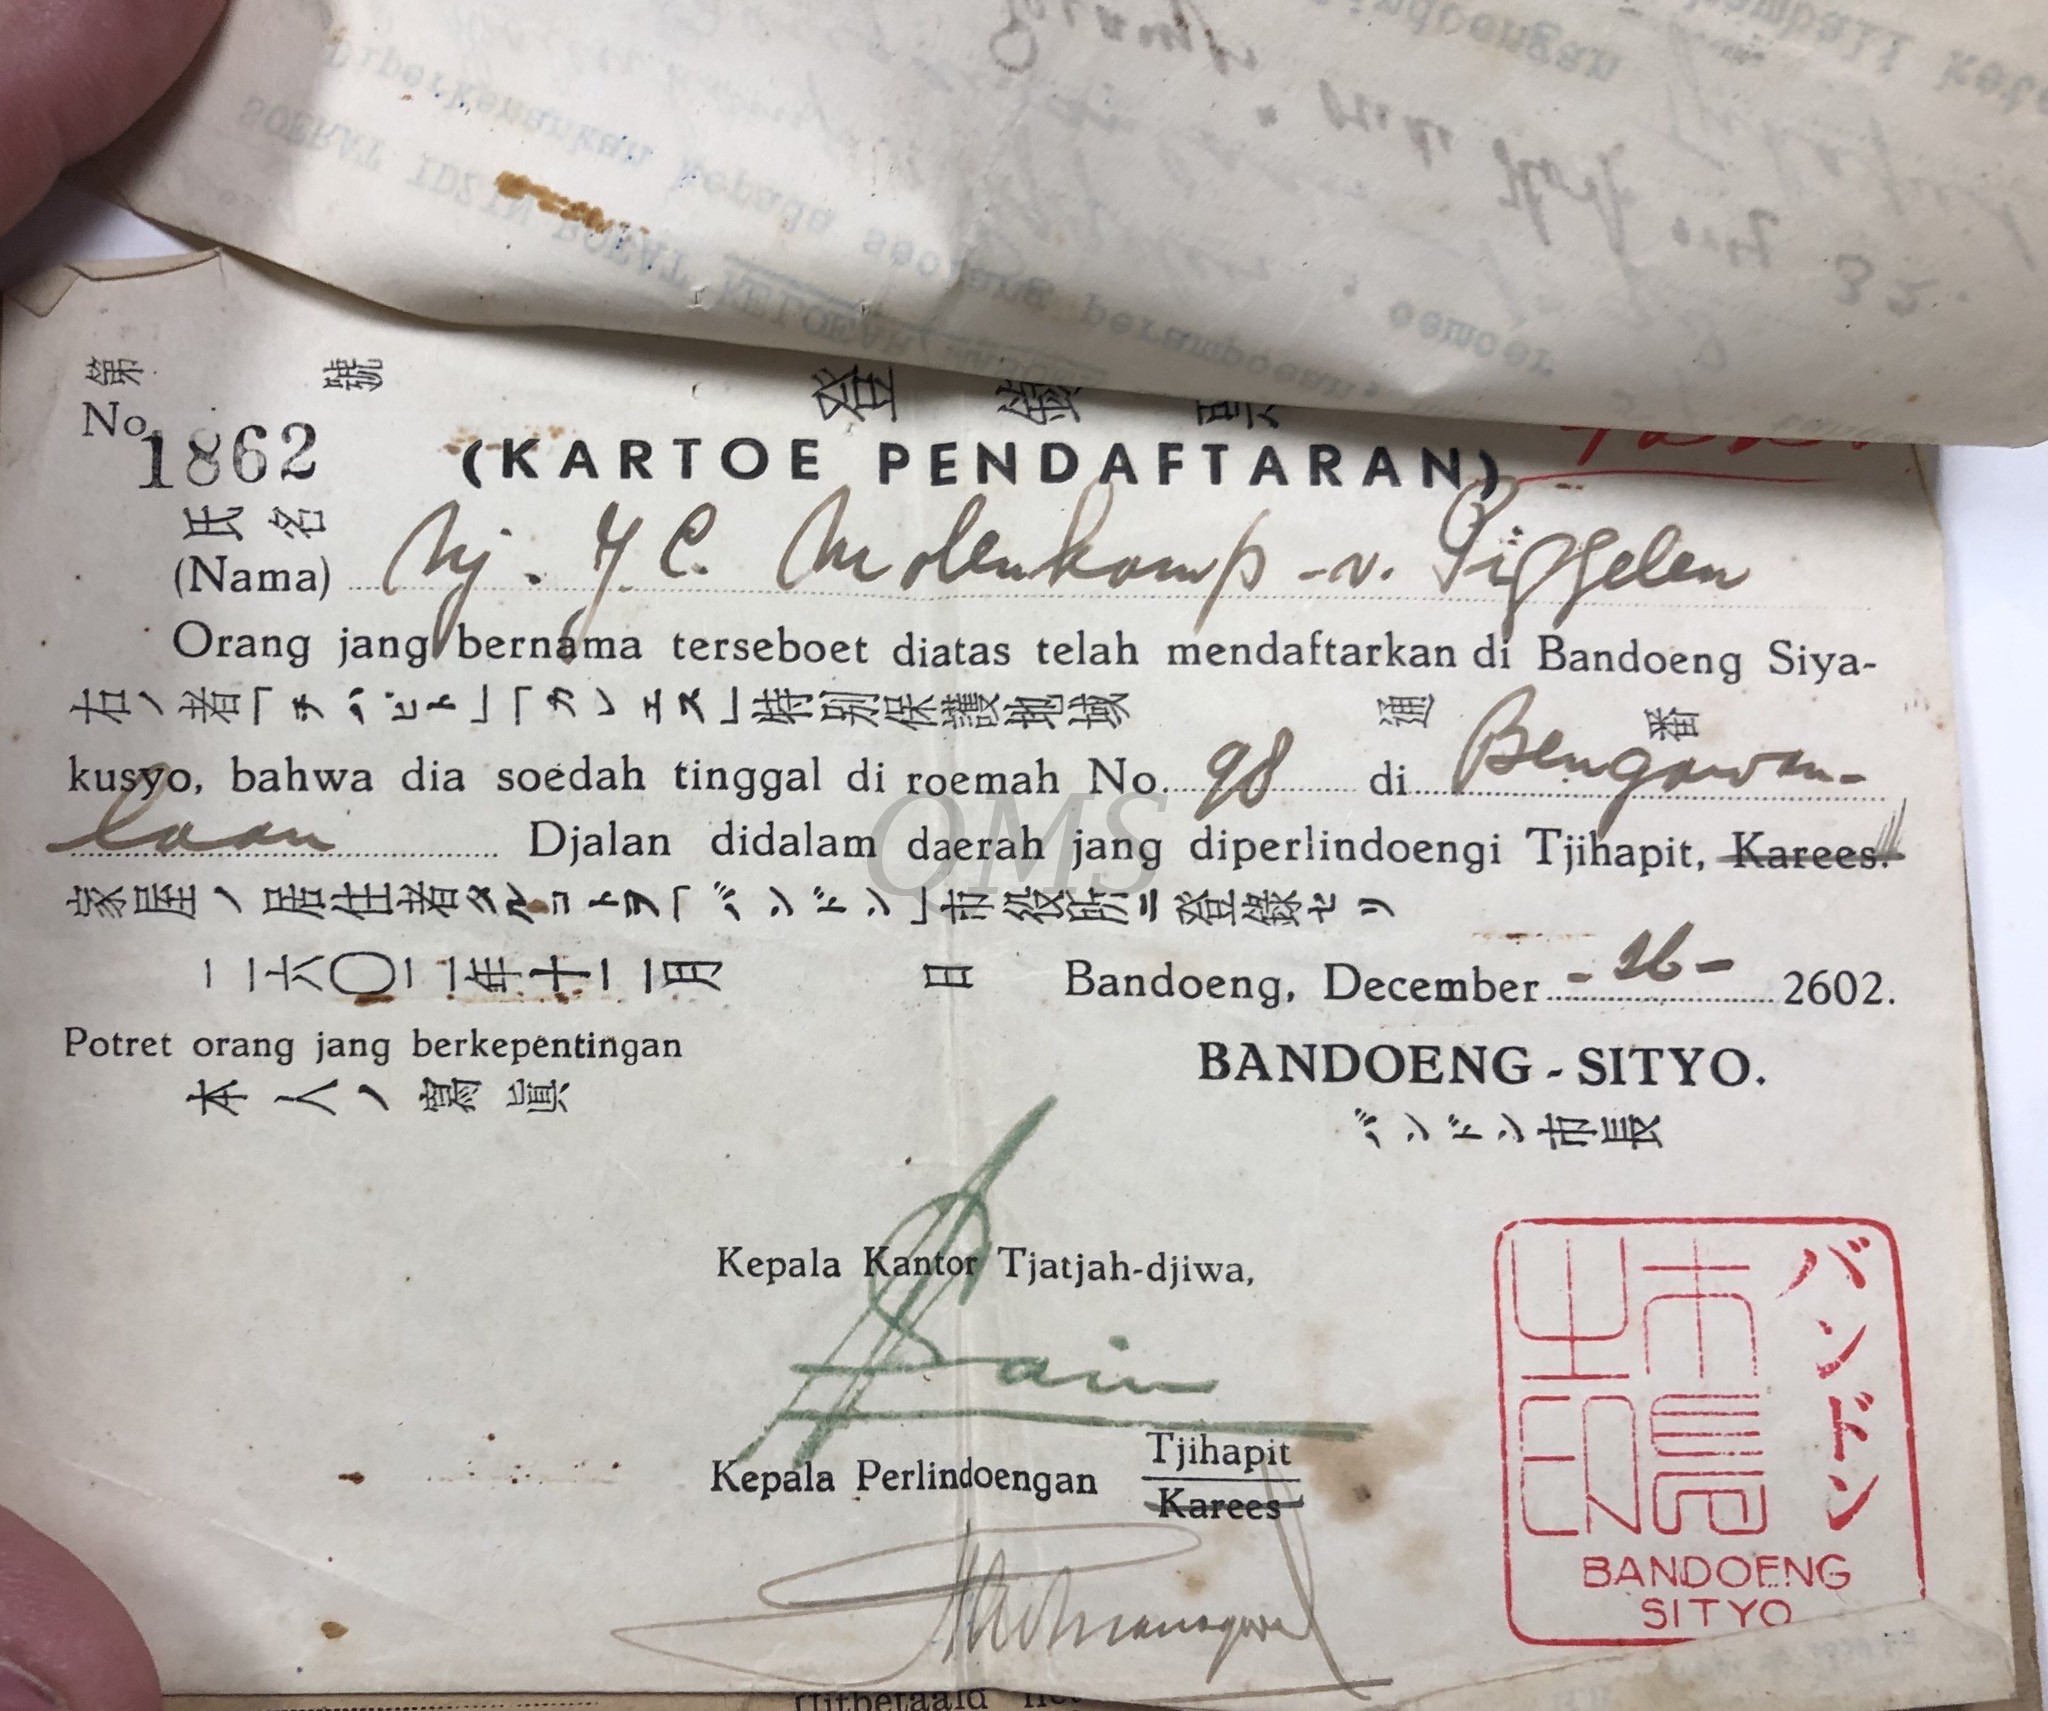 第 號
No. 1862
登錄
(KARTOE PENDAFTARAN)
氏名
(Nama) Nj. J. C. Molenkamp - v. Piggelen
Orang jang bernama terseboet diatas telah mendaftarkan di Bandoeng Siya-
右ノ者「チハピト」「カレエス」特別保護地域 通 番
kusyo, bahwa dia soedah tinggal di roemah No. 98 di Bengawan-
laan Djalan didalam daerah jang diperlindoengi Tjihapit, Karees.
家屋ノ居住者タルコトヲ「バンドン」市役所ニ登錄セリ
二六〇二年十二月 日 Bandoeng, December - 26 - 2602.
Potret orang jang berkepentingan
本人ノ寫眞
BANDOENG - SITYO.
バンドン市長
Kepala Kantor Tjatjah-djiwa,
Kepala Perlindoengan Tjihapit
Karees
バンドン
市長
之印
BANDOENG
SITYO
Uitbetaald
OMS
SOERAT IDZIN BOEAT KELOEAR
diperkenankan kepada seorang perampoean,
oemoer